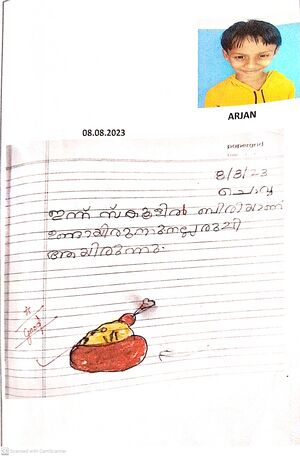 ARJAN
08.08.2023
papergrid
8/8/23
ചൊവ്വ
ഇന്ന് സ്കൂളിൽ ബിരിയാണി
രുചി
ആയിരുന്നു.
Good
Scanned with CamScanner